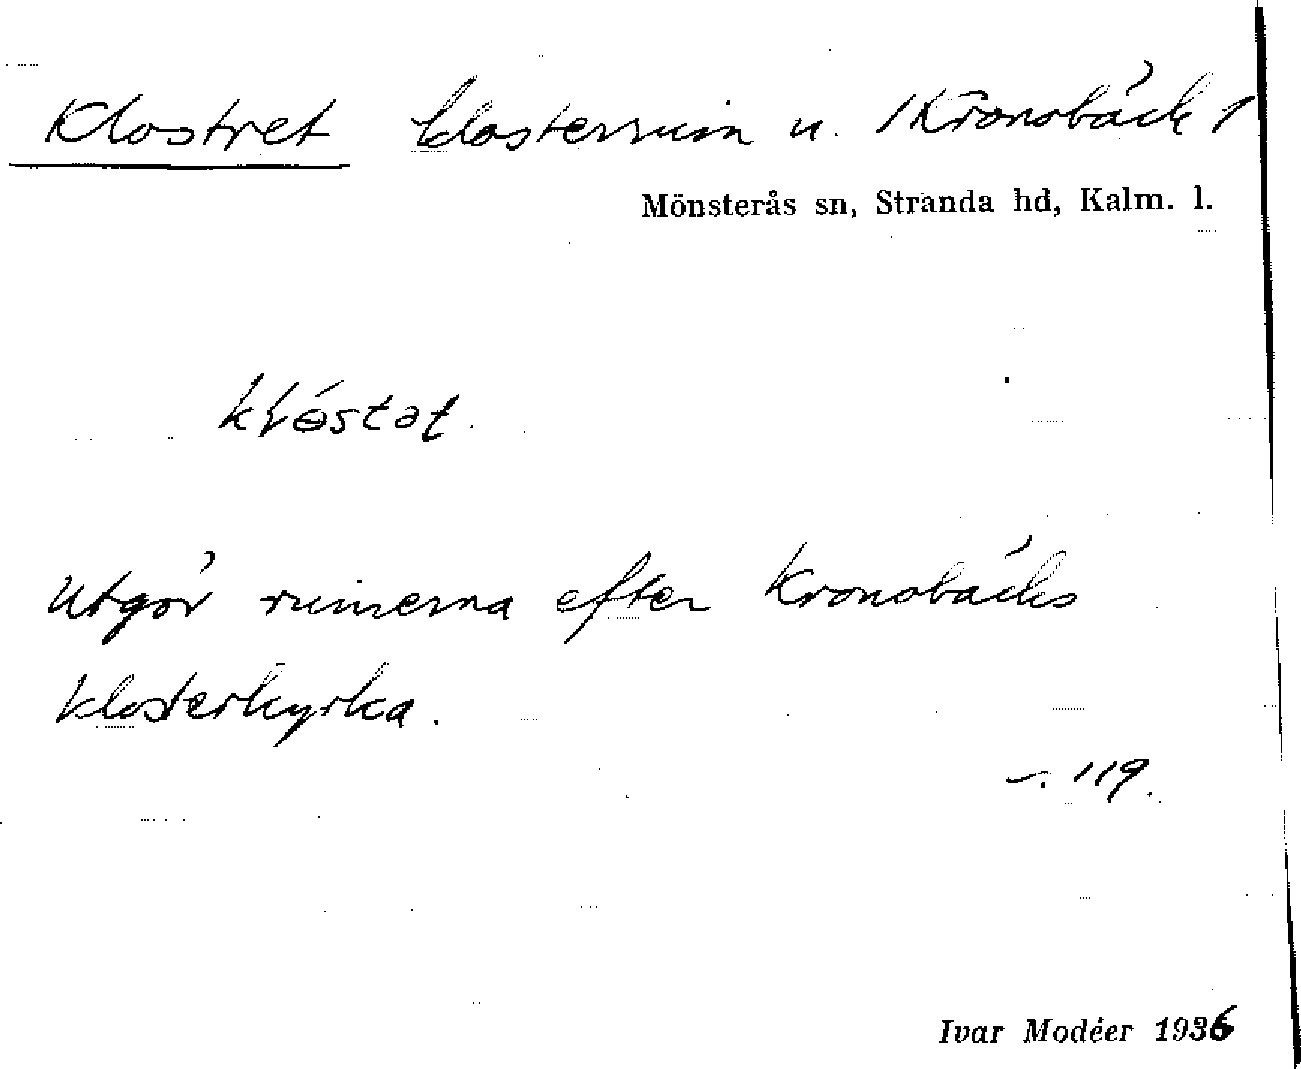 Klostret klosterruin u. /Kronobäck/
Mönsterås sn, Stranda hd, Kalm. l.
Utgör ruinerna efter Kronobäcks
klosterkyrka.
119.
Ivar Modéer 1936